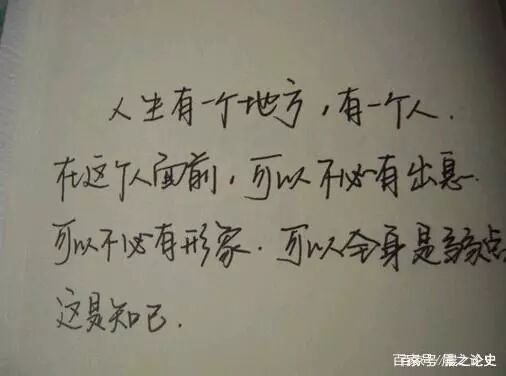 人生有一个地方，有一个人.
在这个人面前，可以不必有出息.
可以不必有形象.可以全身是弱点
这是知己.
百家号/晨之论史